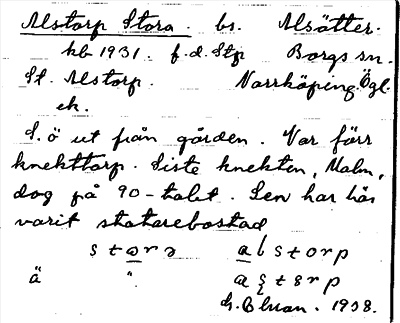 Alstorp Stora. bs. Alsätter.
hb 1931. f.d. Stp Borgs sn.
St. Alstorp. Norrköping. Ögl.
ek.
S.ö ut från gården. Var förr
knekttorp. Siste knekten, Malm,
dog på 90-talet. Sen har här
varit statarebostad
stora alstorp
ä "
1938.